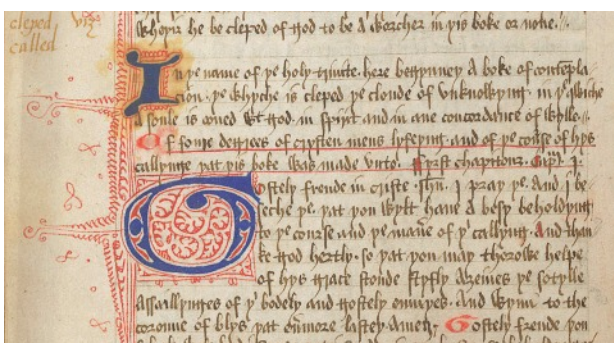 cleped. viz
called
Wheþir he be cleped of god to be a worcher in þis boke or none.
In þe name of þe holy trinite. here begynneþ a boke of contẽpla
cion. þe whyche is cleped þe clowde of vnknowyng. in þe whiche
a soule is oned wt god. in spirit. and in one concordance of wylle.
Of foure degrees of crysten mens lyfeyng. and of þe course of hys
callynge þat þis boke was made vnto. ffyrst chapitour. caþ. i.
Gostely frende in criste. I pray þe. and I be
seche þe. þat þou wylt haue a besy beholdyng
to þe course. and þe manẽ of þi callyng. And than
ke god hertly. so þat þou may thorowe helpe
of hys grace stonde styfly aȝeines þe sotylle
assaillynges of þi bodely and gostely enmyes. And wynn to the
coronne of blys þat euirmore lasteþ. amen. Gostely frende þou